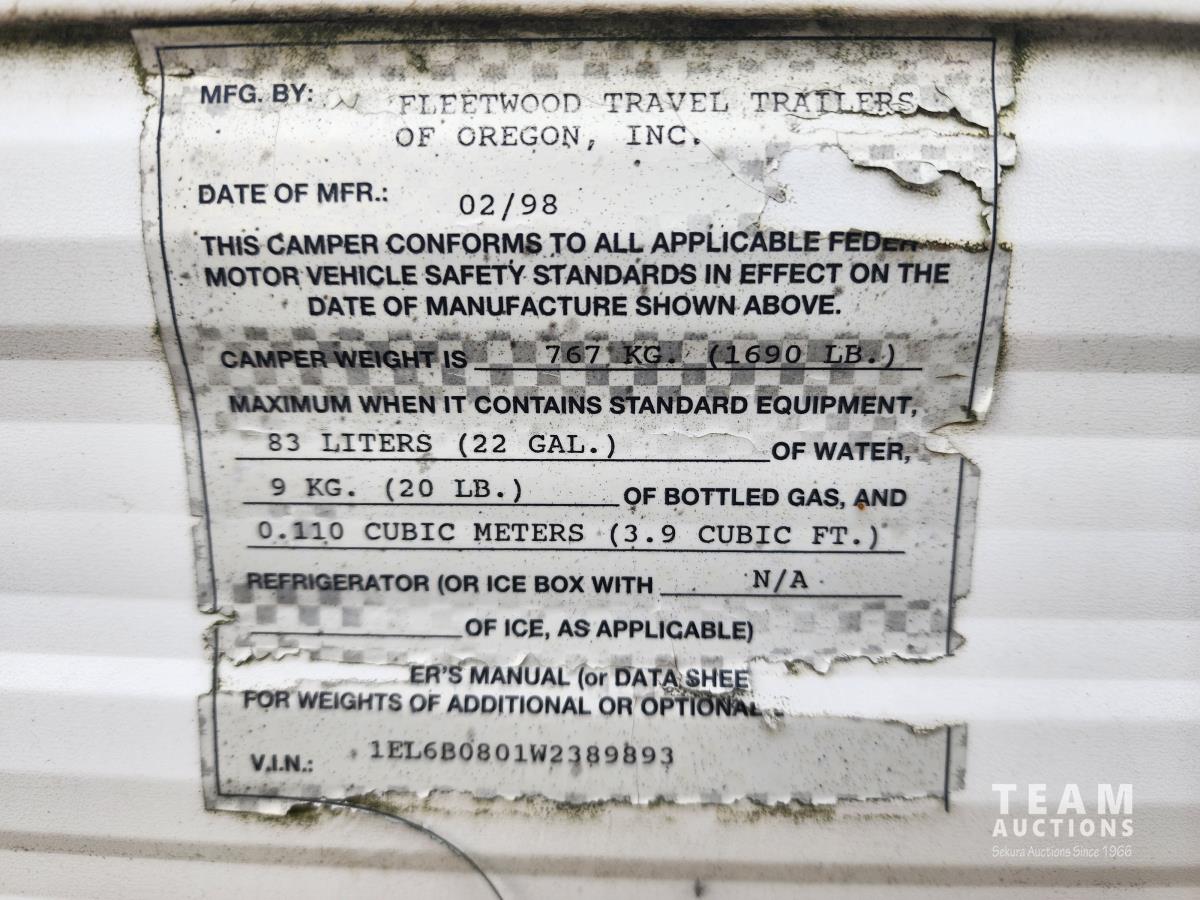 MFG. BY: FLEETWOOD TRAVEL TRAILERS
OF OREGON, INC.
DATE OF MFR.: 02/98
THIS CAMPER CONFORMS TO ALL APPLICABLE FEDER
MOTOR VEHICLE SAFETY STANDARDS IN EFFECT ON THE
DATE OF MANUFACTURE SHOWN ABOVE.
CAMPER WEIGHT IS 767 KG. (1690 LB.)
MAXIMUM WHEN IT CONTAINS STANDARD EQUIPMENT,
83 LITERS (22 GAL.) OF WATER,
9 KG. (20 LB.) OF BOTTLED GAS, AND
0.110 CUBIC METERS (3.9 CUBIC FT.)
REFRIGERATOR (OR ICE BOX WITH N/A
OF ICE, AS APPLICABLE)
ER'S MANUAL (or DATA SHEE
FOR WEIGHTS OF ADDITIONAL OR OPTIONAL
V.I.N.: 1EL6B0801W2389893
TEAM
AUCTIONS
Sekura Auctions Since 1966